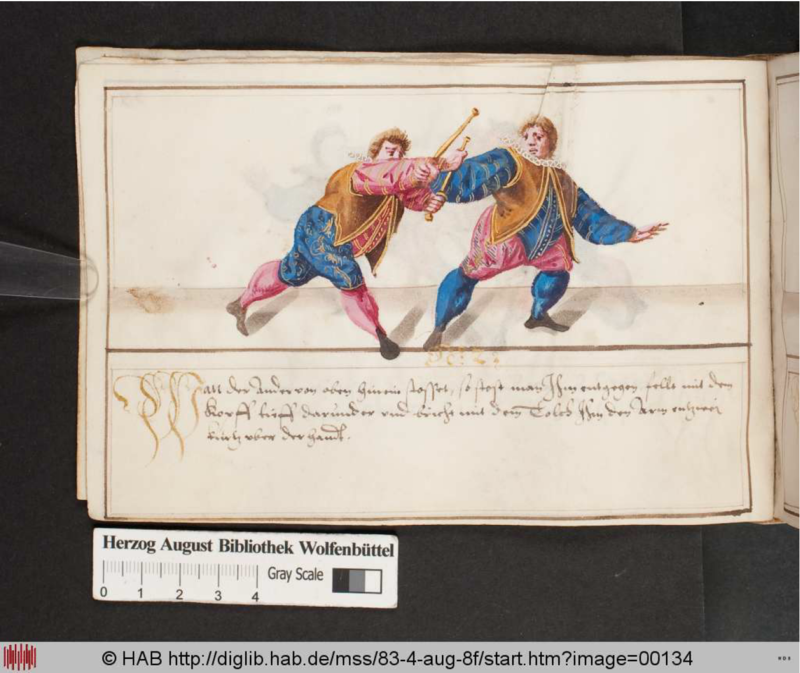 Wan der Ander von oben hinein stosset, so stost man Ihm entgegen felt mit dem
Kopff tieff darunder vnd bricht mit dem Tolch Ihm den Arm entzwei
kurtz vber der handt.
Herzog August Bibliothek Wolfenbüttel
Gray Scale
0 1 2 3 4
© HAB http://diglib.hab.de/mss/83-4-aug-8f/start.htm?image=00134